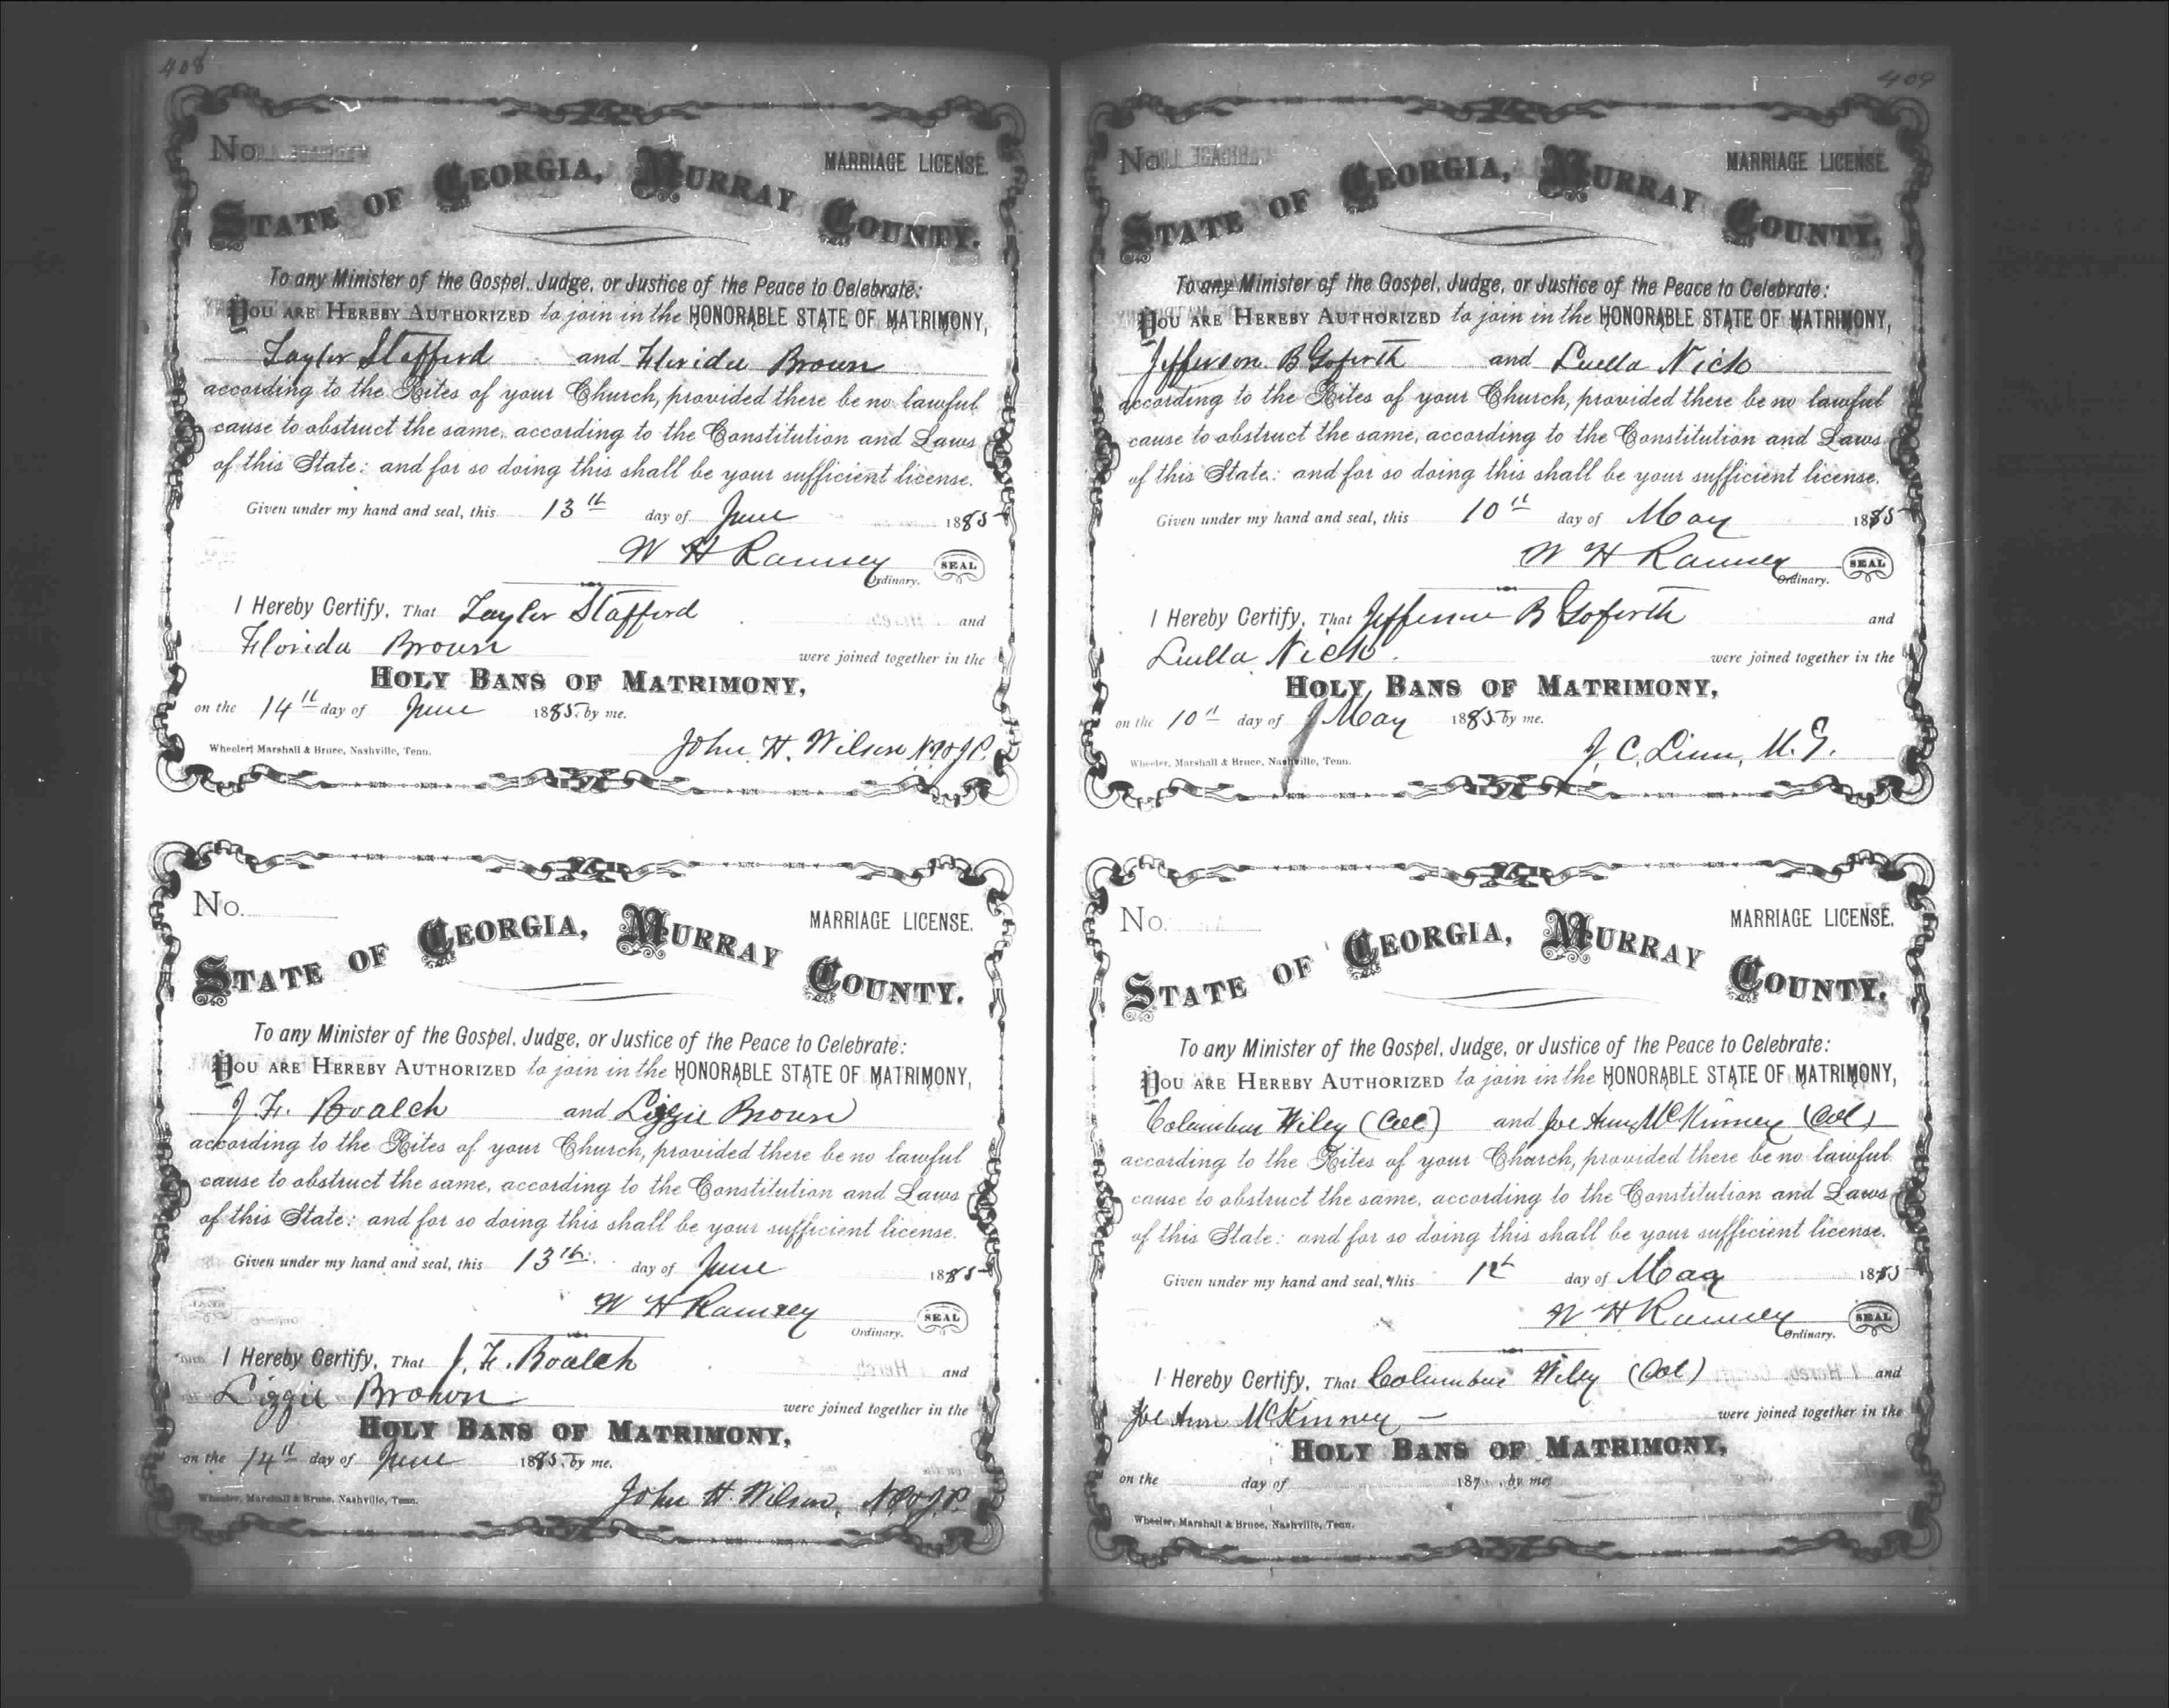 408
No.
MARRIAGE LICENSE.
STATE OF GEORGIA, MURRAY COUNTY.
To any Minister of the Gospel, Judge, or Justice of the Peace to Celebrate:
YOU ARE HEREBY AUTHORIZED to join in the HONORABLE STATE OF MATRIMONY,
Taylor Stafford and Florida Brown
according to the Rites of your Church, provided there be no lawful
cause to obstruct the same, according to the Constitution and Laws
of this State: and for so doing this shall be your sufficient license.
Given under my hand and seal, this 13th day of June 1885
W H Ramsey SEAL
Ordinary.
I Hereby Certify, That Taylor Stafford and
Florida Brown were joined together in the
HOLY BANS OF MATRIMONY,
on the 14th day of June 1885 by me.
Wheeler, Marshall & Bruce, Nashville, Tenn.
John H. Wilson NPOJP.
No.
MARRIAGE LICENSE.
STATE OF GEORGIA, MURRAY COUNTY.
To any Minister of the Gospel, Judge, or Justice of the Peace to Celebrate:
YOU ARE HEREBY AUTHORIZED to join in the HONORABLE STATE OF MATRIMONY,
J. F. Boalch and Lizzie Brown
according to the Rites of your Church, provided there be no lawful
cause to obstruct the same, according to the Constitution and Laws
of this State: and for so doing this shall be your sufficient license.
Given under my hand and seal, this 13th day of June 1885
W H Ramsey SEAL
Ordinary.
I Hereby Certify, That J. F. Boalch and
Lizzie Brown were joined together in the
HOLY BANS OF MATRIMONY,
on the 14th day of June 1885 by me.
Wheeler, Marshall & Bruce, Nashville, Tenn.
John H. Wilson, NPOJP.
409
No.
MARRIAGE LICENSE.
STATE OF GEORGIA, MURRAY COUNTY.
To any Minister of the Gospel, Judge, or Justice of the Peace to Celebrate:
YOU ARE HEREBY AUTHORIZED to join in the HONORABLE STATE OF MATRIMONY,
Jefferson B Goforth and Luella Nick
according to the Rites of your Church, provided there be no lawful
cause to obstruct the same, according to the Constitution and Laws
of this State: and for so doing this shall be your sufficient license.
Given under my hand and seal, this 10th day of May 1885
W H Ramsey SEAL
Ordinary.
I Hereby Certify, That Jefferson B Goforth and
Luella Nick were joined together in the
HOLY BANS OF MATRIMONY,
on the 10th day of May 1885 by me.
J. C. Linn, M. G.
Wheeler, Marshall & Bruce, Nashville, Tenn.
No.
MARRIAGE LICENSE.
STATE OF GEORGIA, MURRAY COUNTY.
To any Minister of the Gospel, Judge, or Justice of the Peace to Celebrate:
YOU ARE HEREBY AUTHORIZED to join in the HONORABLE STATE OF MATRIMONY,
Columbus Wiley (Col) and Joe Ann McKinney (Col)
according to the Rites of your Church, provided there be no lawful
cause to obstruct the same, according to the Constitution and Laws
of this State: and for so doing this shall be your sufficient license.
Given under my hand and seal, this day of May 1885
W H Ramsey SEAL
Ordinary.
I Hereby Certify, That Columbus Wiley (Col) and
Joe Ann McKinney – were joined together in the
HOLY BANS OF MATRIMONY,
on the day of 187 , by me
Wheeler, Marshall & Bruce, Nashville, Tenn.